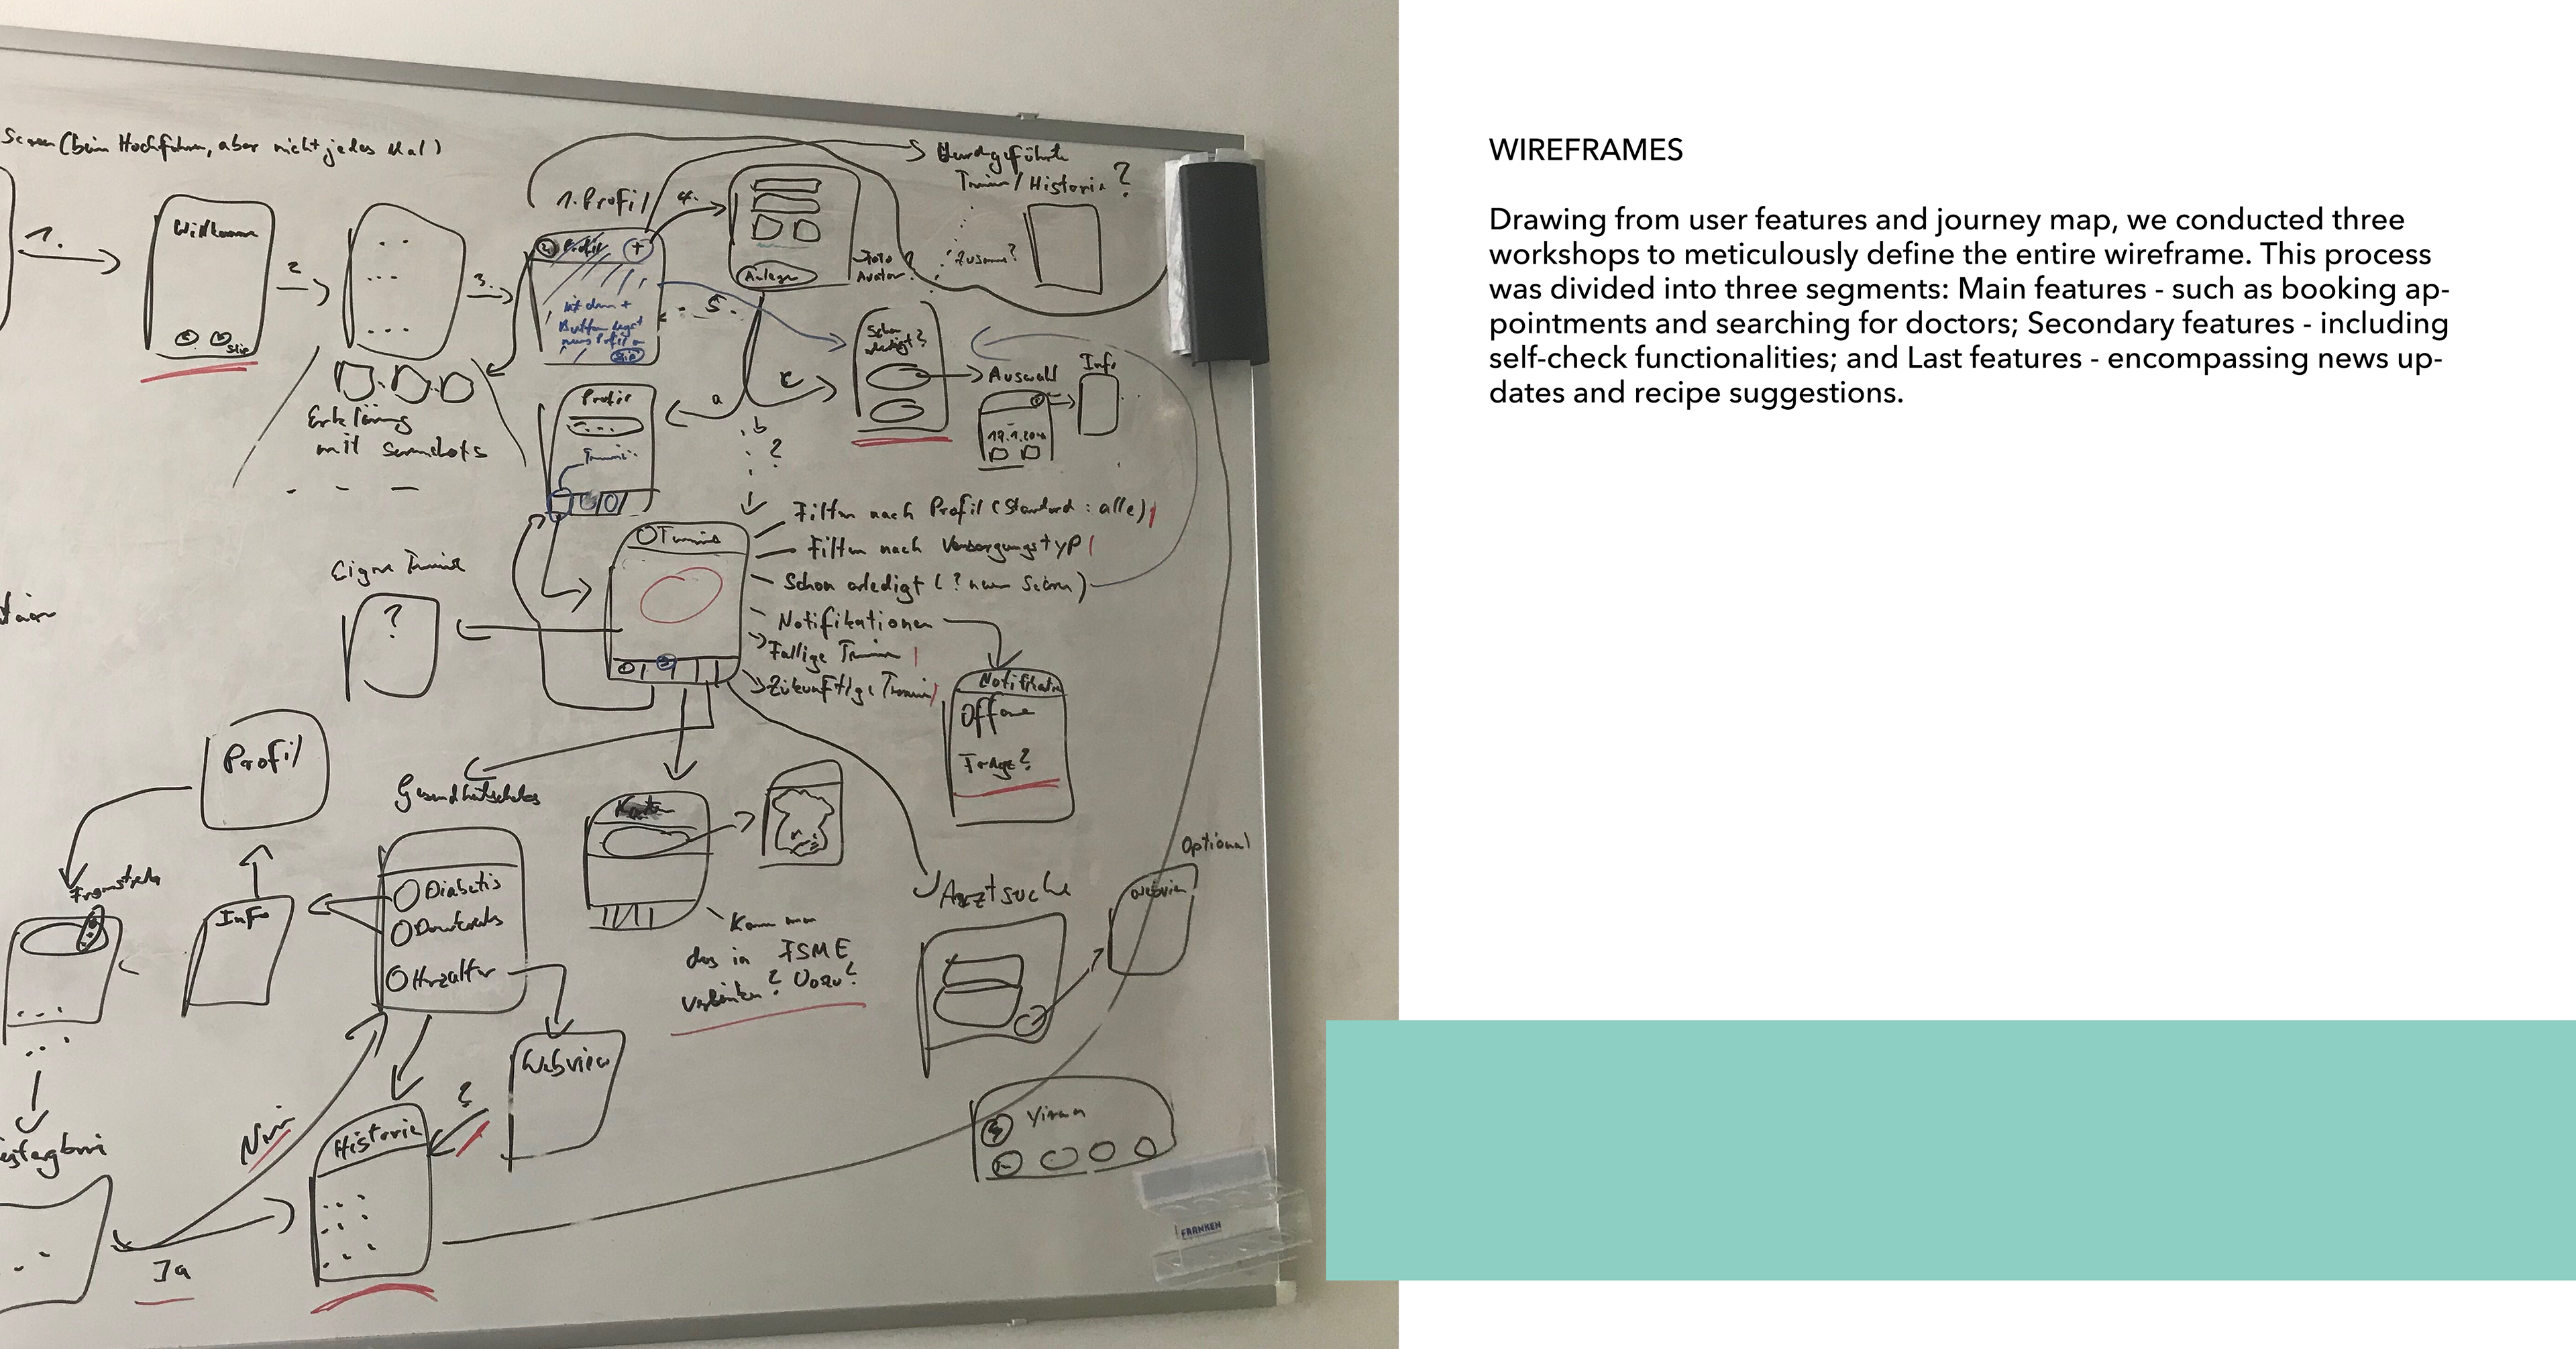 Screen (beim Hochfahren, aber nicht jedes Mal)
1.
Willkommen
Skip
2
3.
1. Profil
4.
Profil
+
Mit dem +
Button legst
neues Profil an
Skip
Anlegen
Foto
Avatar?
Durchgeführte
Termine/Historie?
Zusamm?
5.
Schon
erledigt?
Auswahl
Info
Erklärung
mit Screenshots
Profil
Termine
a
b
?
c
Termine
Filtern nach Profil (Standard: alle)
Filtern nach Versorgungstyp
Schon erledigt (? neuer Screen)
Notifikationen
Fällige Termine
Zukünftige Termine
Eigene Termine
?
Notifikation
Offene
Frage?
Profil
Gesundheitschecks
Karten
Info
Diabetis
Herzalter
Kann man
das in FSME
verlinken?
Arztsuche
Optional
Webview
Webview
?
Historie
Nein
Ja
FRANKEN
WIREFRAMES
Drawing from user features and journey map, we conducted three
workshops to meticulously define the entire wireframe. This process
was divided into three segments: Main features - such as booking ap-
pointments and searching for doctors; Secondary features - including
self-check functionalities; and Last features - encompassing news up-
dates and recipe suggestions.